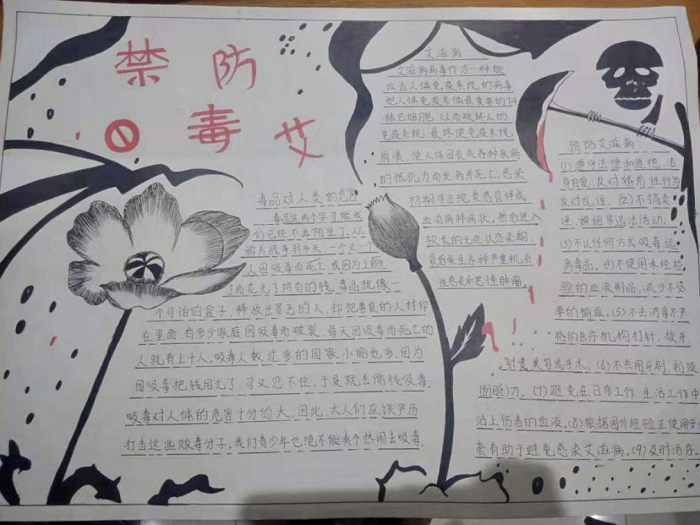 禁 防
毒 艾
毒品对人类的危害
毒品这两个字了解我
们已经不再陌生了,从
鸦片战争到今天,一个又一个
人因吸毒而死亡,或因为上瘾
了而花光了所有的钱,毒品就像一
个可怕的盒子,释放出罪恶的人,却把善良的人封印
在里面,有多少家庭因吸毒而破裂,每天因吸毒而死亡的
人就有上千人,吸毒人数过多的国家小偷也多,因为
因吸毒把钱用光了,可又忍不住,于是就去偷钱吸毒,
吸毒对人体的危害十分的大,因此,大人们应该严厉
打击这些贩毒分子,我们青少年也绝不能来个热闹去吸毒.
艾滋病
艾滋病病毒作为一种能
攻击人体免疫系统的病毒
把人体免疫系统最重要的T4
淋巴细胞,从而破坏人的
免疫系统,最终使免疫系统
崩溃,使人体因丧失各种疾病
的抵抗力而发病并死亡,感染
初期可出现类感冒样或
血清病样症状,然后进入
较长的无症状感染期,
易自发生各种严重机会
性感染和恶性肿瘤.
预防艾滋病
(1)遵守法律和道德,洁
身自爱,反对婚前性行为
反对乱性,(2)不搞卖
淫、嫖娼等违法活动.
(3)不以任何方式吸毒远
离毒品,(4)不使用未经检
验的血液制品,减少不必
要的输血,(5)不去消毒不严
格的医疗机构打针、拔牙、
针灸美容或手术,(6)不共用牙刷、剃须
(刮脸)刀,(7)避免在日常工作、生活工作中
沾上伤者的血液,(8)根据国外经验正使用安
套有助于避免感染艾滋病,(9)及时治疗.